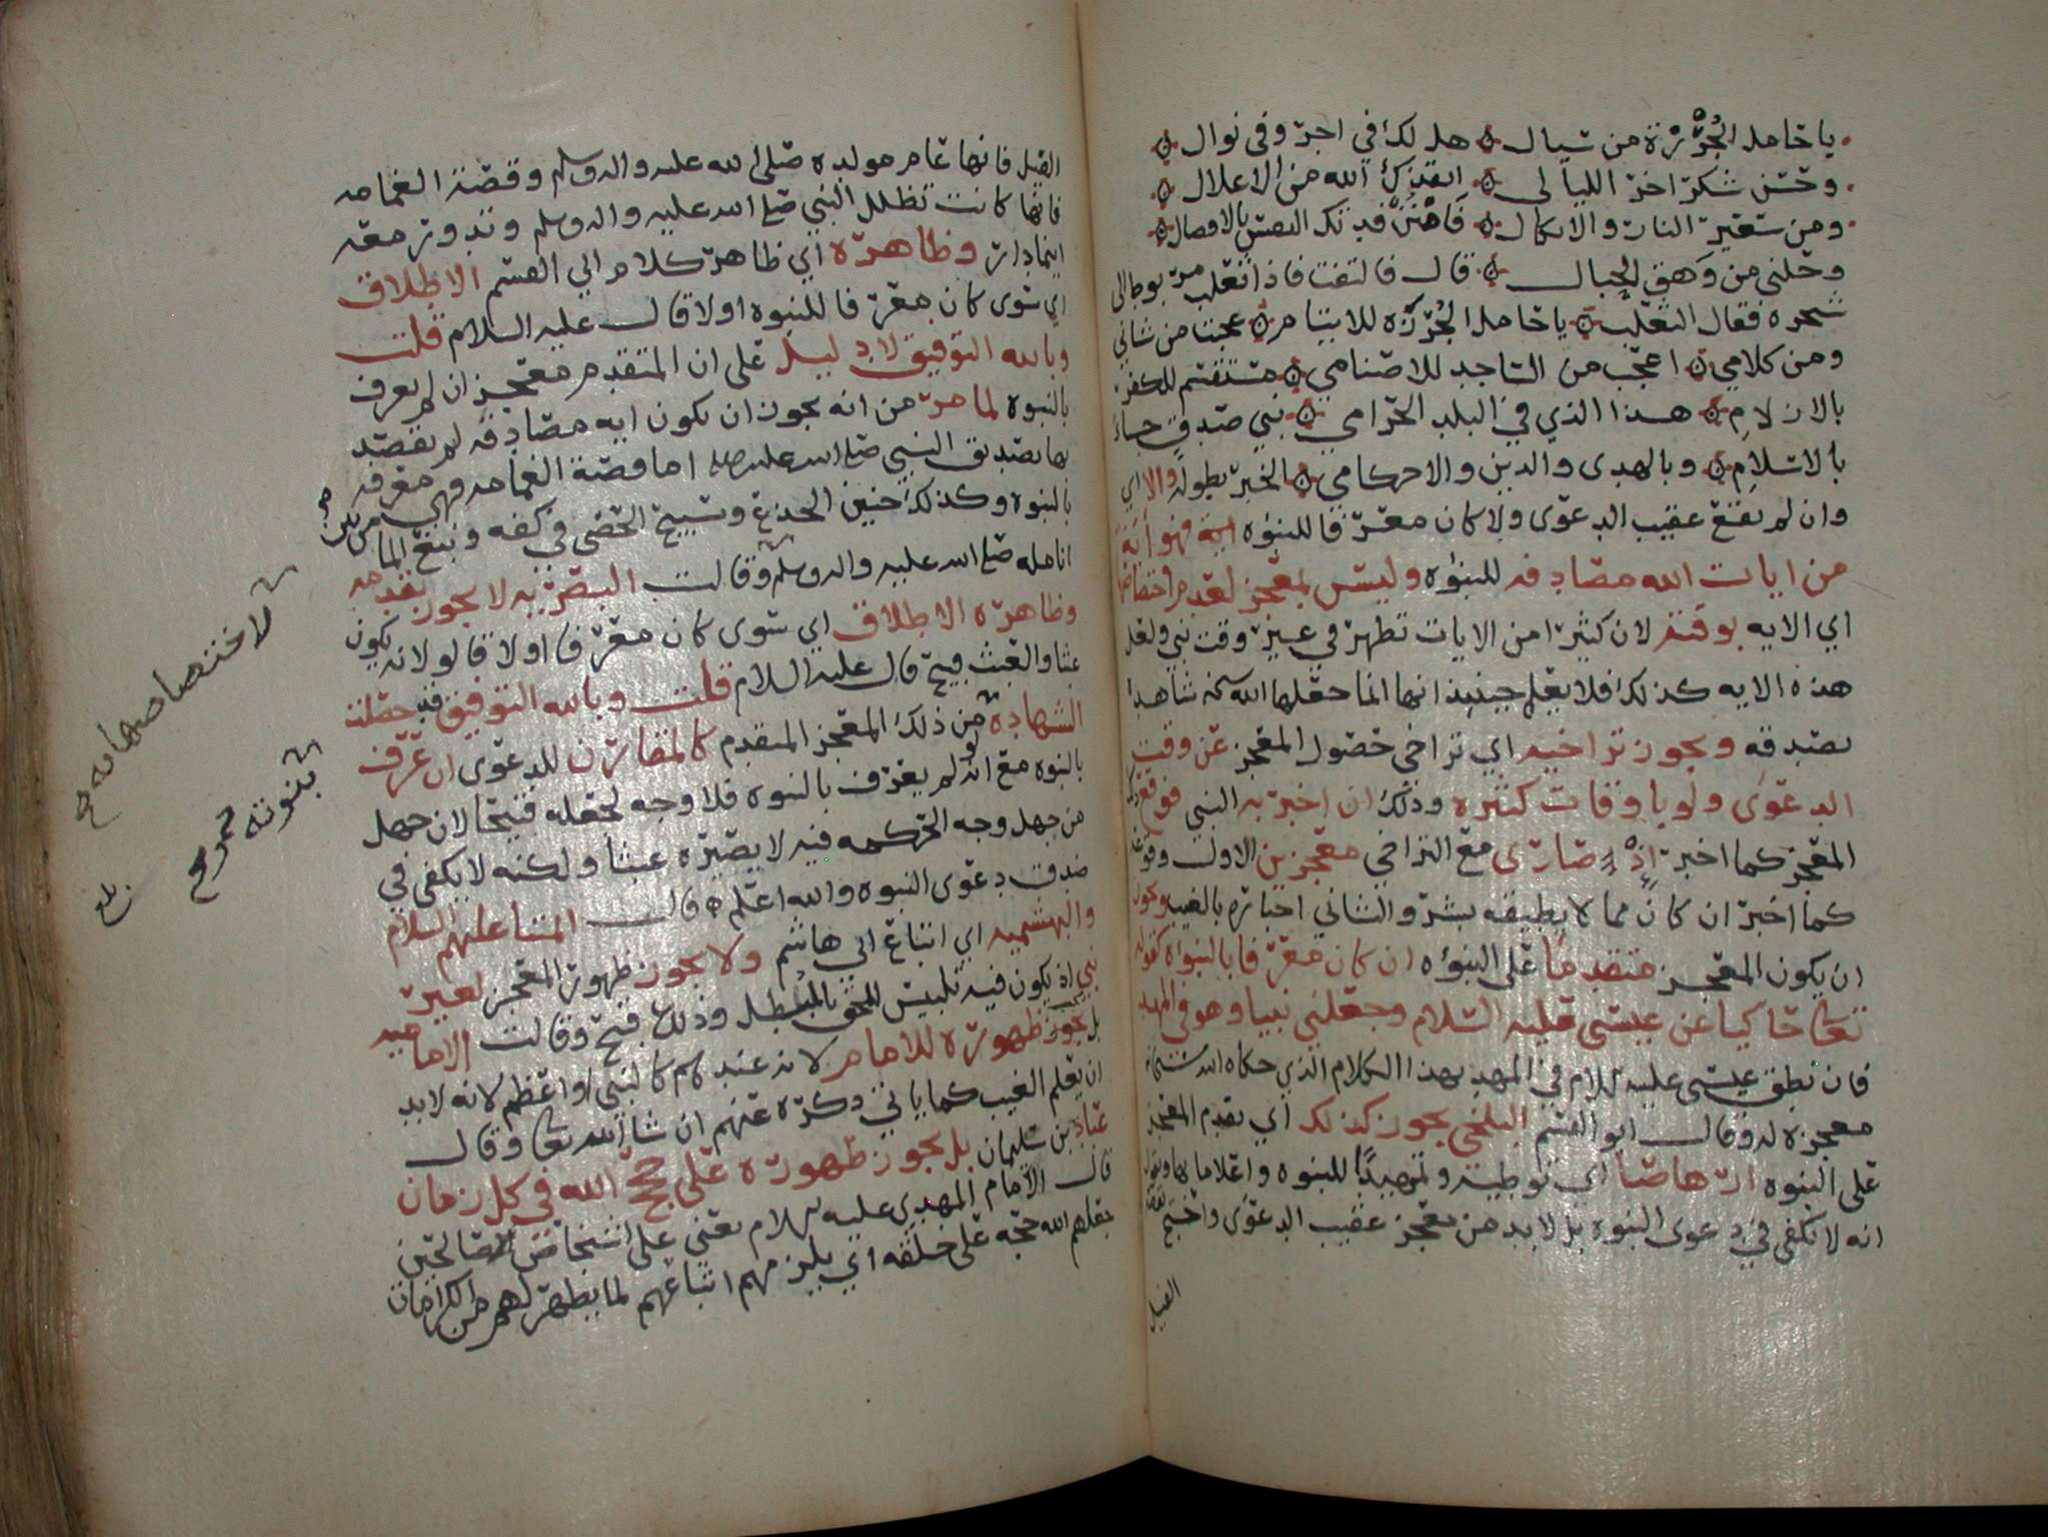 يا حامل الجُرْزة من شيال هل لك في اجر وفي نوال
وحسن شكر اخر الليالي انقذك الله من الاغلال
ومن سعير النار والانكال فامنن فدتك النفس بالافضال
وحلني من وهق الحبال قال فالتفت فاذا ثعلب مربوط الى
شجره فقال الثعلب يا حامل الجُرْزه للايتام عجبت من شاني
ومن كلامي اعجب من الساجد للاصنامي مستقسم للكفر
بالازلام هذا الذي في البلد الحرامي نبي صدق جاء
بالاسلام وبالهدى والدين والاحكامي الخبر بطوله والا اي
وان لم يقع عقيب الدعوى ولا كان معرفا للنبوه اية فهو اية
من ايات الله مصادفه للنبوه وليس بمعجز لعدم اختصاصها
اي الايه بوقته لان كثيرا من الايات تظهر في غير وقت نبي ولعل
هذه الايه كذلك فلا يعلم حينئذ انها انما جعلها الله سبحنه شاهدا
بصدقه ويجوز تراخيه اي تراخي حصول المعجز عن وقت
الدعوى ولو باوقات كثيره وذلك ان اخبر به النبي فوقع ذلك
المعجز كما اخبر اذ صارى مع التراخي معجزين الاول وقوعه
كما اخبر ان كان مما لا يطيقه بشر والثاني اخباره بالغيب ويجوز
ان يكون المعجز متقدما على النبوه ان كان معرفا بالنبواه كقوله
تعالى حاكيا عن عيسى عليه السلام وجعلني نبيا وهو في المهد
فان نطق عيسى عليه السلام في المهد بهذا الكلام الذي حكاه الله سبحانه
معجزه له وقال ابو القسم البلخي يجوز كذلك اي تقدم المعجز
على النبوه ارهاصا اي توطية وتمهيدا للنبوه واعلاما بها ويقول
انه لا يكفي في دعوى النبوه بل لا بد من معجز عقيب الدعوى واحتج بقصة
الفيل
الفيل فانها عام مولده صلى الله عليه واله وسلم وقصة الغمامه
فانها كانت تظلل النبي صلى الله عليه واله وسلم وتدور معه
اينما دار وظاهره اي ظاهر كلام ابي القسم الاطلاق
اي سوى كان معرفا للنبوه او لا قال عليه السلام قلت
وبالله التوفيق لا دليل على ان المتقدم معجز ان لم يعرف
بالنبوه لما مر من انه يجوز ان يكون ايه مصادفه لم يقصد
بها تصديق النبي صلى الله عليه اما قصة الغمامه فهي معرفه
بالنبوه وكذلك حنين الجذع وتسبيح الحصى في كفه ونبع الما من بين
انامله صلى الله عليه واله وسلم وقالت البصريه لا يجوز تقدمه
وظاهره الاطلاق اي سوى كان معرفا او لا قالو لانه يكون
عبثا والعبث قبيح قال عليه السلام قلت وبالله التوفيق قد حصلت
الشهاده من ذلك المعجز المتقدم كالمقارن للدعوى ان عرف
بالنبوه مع انه لو لم يعرف بالنبوه فلا وجه لجعله قبيحا لان جهل
من جهل وجه الحكمه فيه لا يصيره عبثا ولكنه لا يكفي في
صدق دعوى النبوه والله اعلم قال ائمتنا عليهم السلام
والبهشميه اي اتباع ابي هاشم ولا يجوز ظهور المعجز لغير
نبي اذ يكون فيه تلبيس للمحق بالمبطل وذلك قبيح وقالت الاماميه
بل يجوز ظهوره للامام لانه عندهم كالنبي او اعظم لانه لا بد
ان يعلم الغيب كما ياتي ذكره عنهم ان شا الله تعالى وقال
عباد بن سليمان بل يجوز ظهوره على حجج الله في كل زمان
قال الامام المهدي عليه السلام يعني على اشخاص صالحين
جعلهم الله حجه على خلقه اي يلزمهم اتباعهم لما يظهر لهم من الكرامات
لاختصاصها به صح
بنبوته صح
بلغ